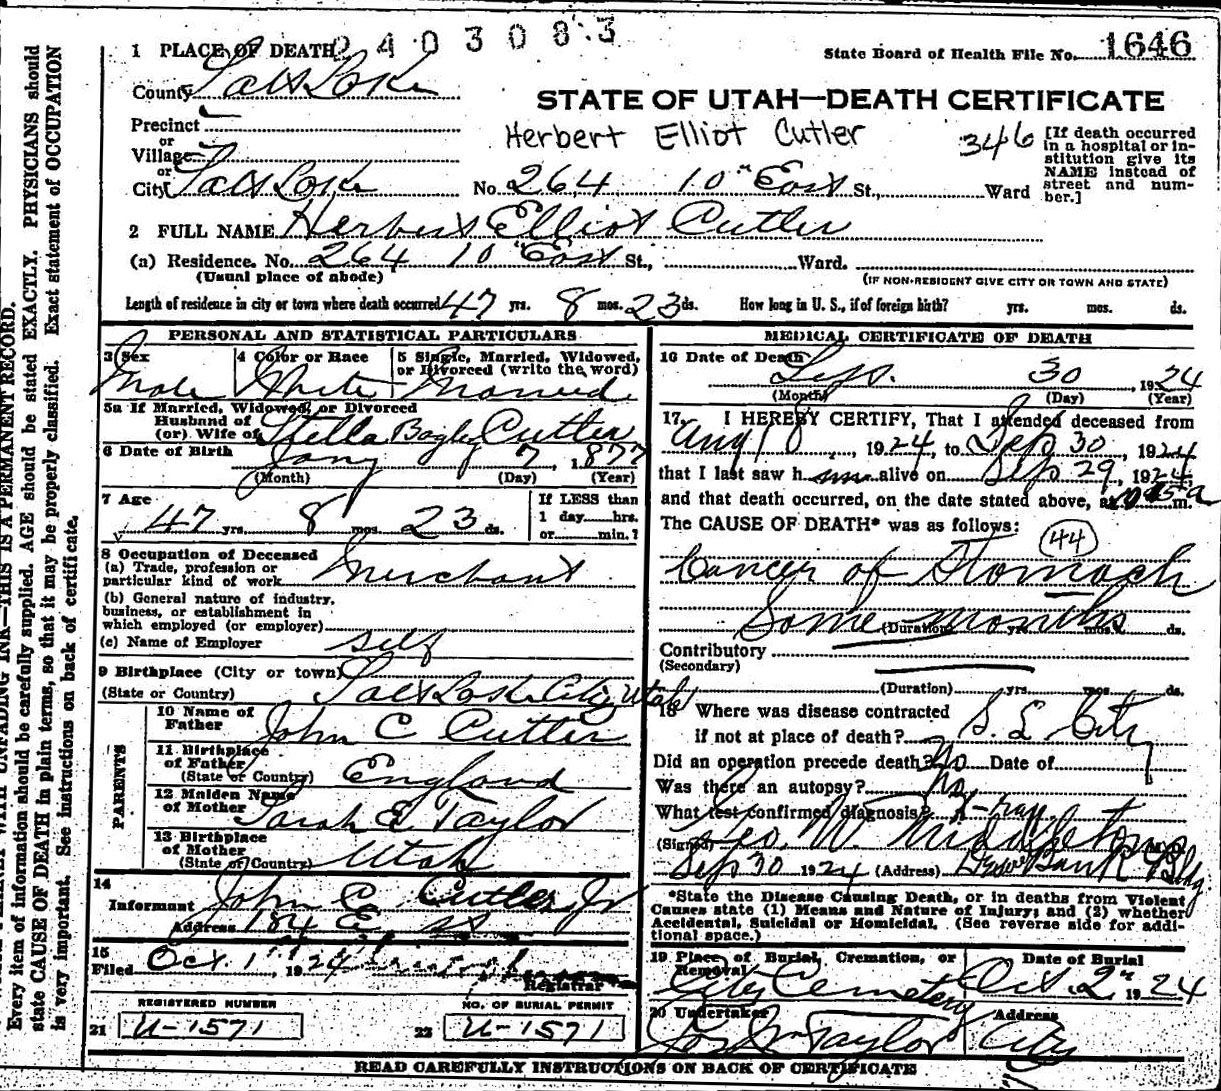 2403083
1 PLACE OF DEATH
State Board of Health File No. 1646
County Salt Lake
STATE OF UTAH—DEATH CERTIFICATE
Precinct
or
Village
or
Herbert Elliot Cutler 346
[If death occurred in a hospital or institution give its NAME instead of street and number.]
City Salt Lake No. 264 10" East St., Ward
2 FULL NAME Herbert Elliot Cutler
(a) Residence. No. 264 10" East St., Ward.
(Usual place of abode) (IF NON-RESIDENT GIVE CITY OR TOWN AND STATE)
Length of residence in city or town where death occurred 47 yrs. 8 mos. 23 ds. How long in U. S., if of foreign birth? yrs. mos. ds.
PERSONAL AND STATISTICAL PARTICULARS
3 Sex 4 Color or Race 5 Single, Married, Widowed, or Divorced (write the word)
Male White Married
5a If Married, Widowed, or Divorced
Husband of
(or) Wife of Stella Bagley Cutler
6 Date of Birth Jany 7, 1877
(Month) (Day) (Year)
7 Age If LESS than
47 yrs. 8 mos. 23 ds. 1 day hrs.
or min.?
8 Occupation of Deceased
(a) Trade, profession or
particular kind of work Merchant
(b) General nature of industry,
business, or establishment in
which employed (or employer)
(c) Name of Employer self
9 Birthplace (City or town)
(State or Country) Salt Lake City, Utah
PARENTS
10 Name of
Father John C Cutler
11 Birthplace
of Father
(State or Country) England
12 Maiden Name
of Mother Sarah E. Taylor
13 Birthplace
of Mother
(State of Country) Utah
14
Informant John C. Cutler Jr
Address 184 E
15
Filed Oct. 1", 1924
Registrar
REGISTERED NUMBER NO. OF BURIAL PERMIT
21 U-1571 22 U-1571
MEDICAL CERTIFICATE OF DEATH
16 Date of Death Sept. 30, 1924
(Month) (Day) (Year)
17. I HEREBY CERTIFY, That I attended deceased from
Aug 18, 1924, to Sep 30, 1924
that I last saw h im alive on Sep 29, 1924
and that death occurred, on the date stated above, at m.
The CAUSE OF DEATH* was as follows: 44
Cancer of Stomach
Some months
(Duration) yrs. mos. ds.
Contributory
(Secondary)
(Duration) yrs. mos. ds.
18 Where was disease contracted
if not at place of death? S. L. City
Did an operation precede death? No Date of
Was there an autopsy? No
What test confirmed diagnosis? X-ray
(Signed) Geo. W. Middleton M. D.
Sep 30 1924 (Address) Deseret Bank Bldg
*State the Disease Causing Death, or in deaths from Violent
Causes state (1) Means and Nature of Injury; and (2) whether
Accidental, Suicidal or Homicidal. (See reverse side for addi-
tional space.)
19 Place of Burial, Cremation, or Date of Burial
Removal
City Cemetery Oct. 2" 1924
20 Undertaker Address
Jos Wm Taylor City
READ CAREFULLY INSTRUCTIONS ON BACK OF CERTIFICATE
WITH UNFADING INK—THIS IS A PERMANENT RECORD.
Every item of information should be carefully supplied. AGE should be stated EXACTLY. PHYSICIANS should
state CAUSE OF DEATH in plain terms, so that it may be properly classified. Exact statement of OCCUPATION
is very important. See instructions on back of certificate.